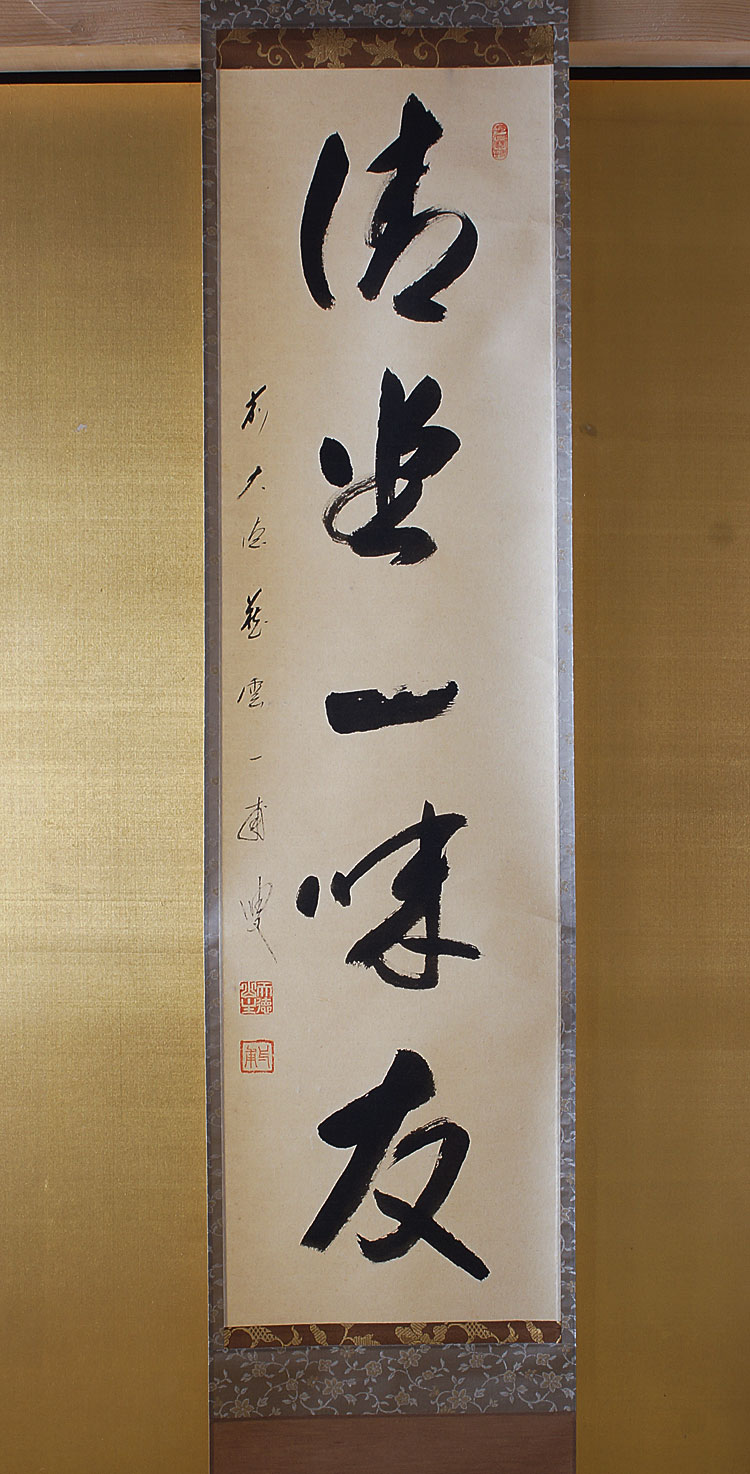 清坐一味友
前大徳雲一甫叟